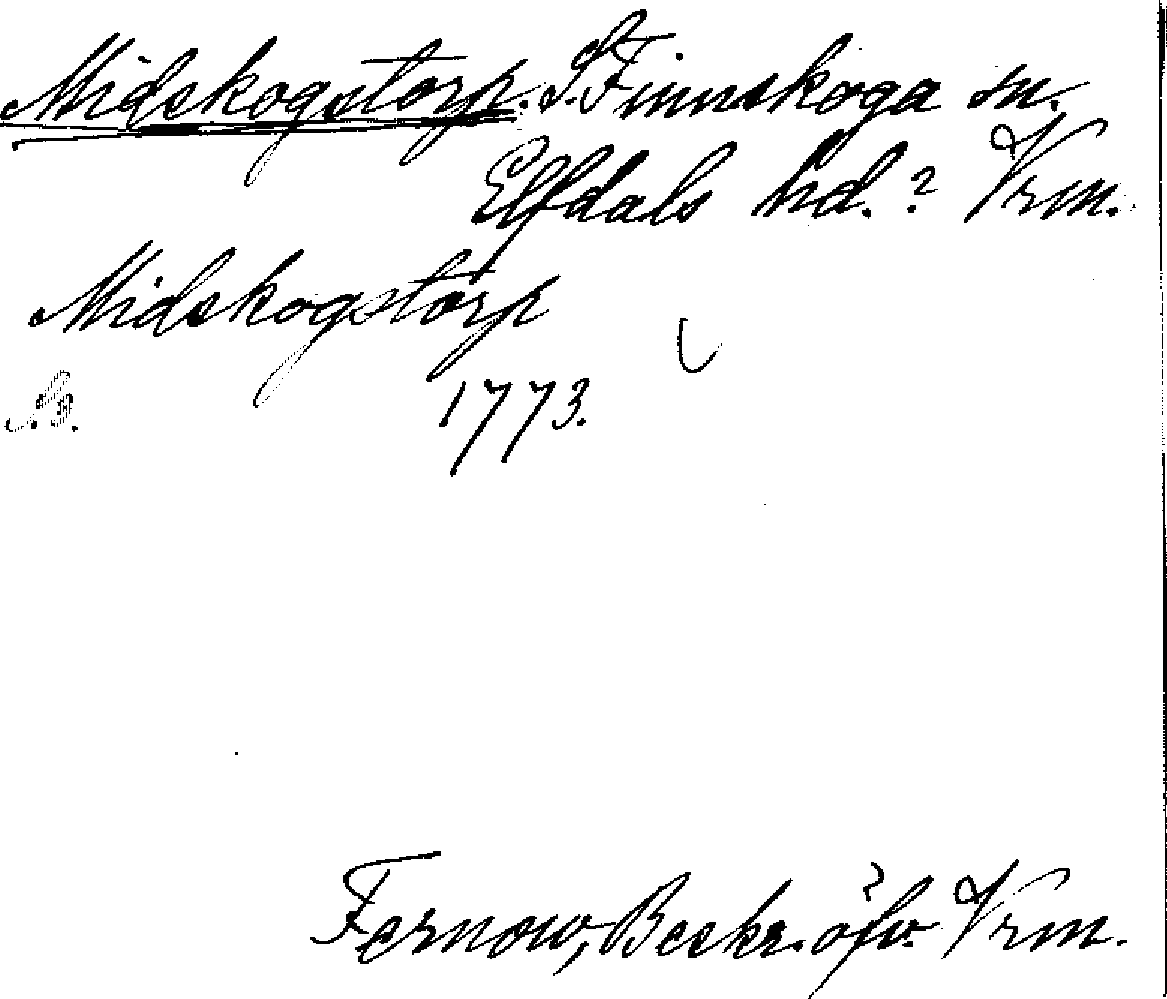 Midskogstorp. S. Finnskoga sn.
Elfdals hd.? Vrm.
Midskogstorp
1773.
Fernow, Beskr. öfv. Vrm.